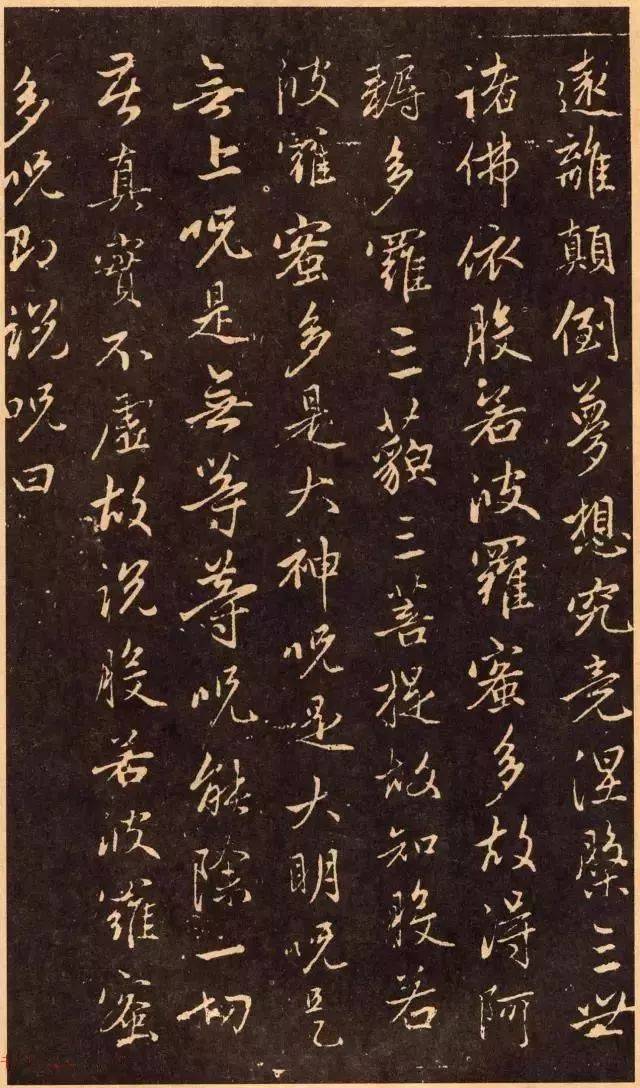 遠離顛倒夢想究竟涅槃三世
諸佛依般若波羅蜜多故得阿
耨多羅三藐三菩提故知般若
波羅蜜多是大神呪是大明呪是
無上呪是無等等呪能除一切
苦真實不虛故說般若波羅蜜
多呪即說呪曰